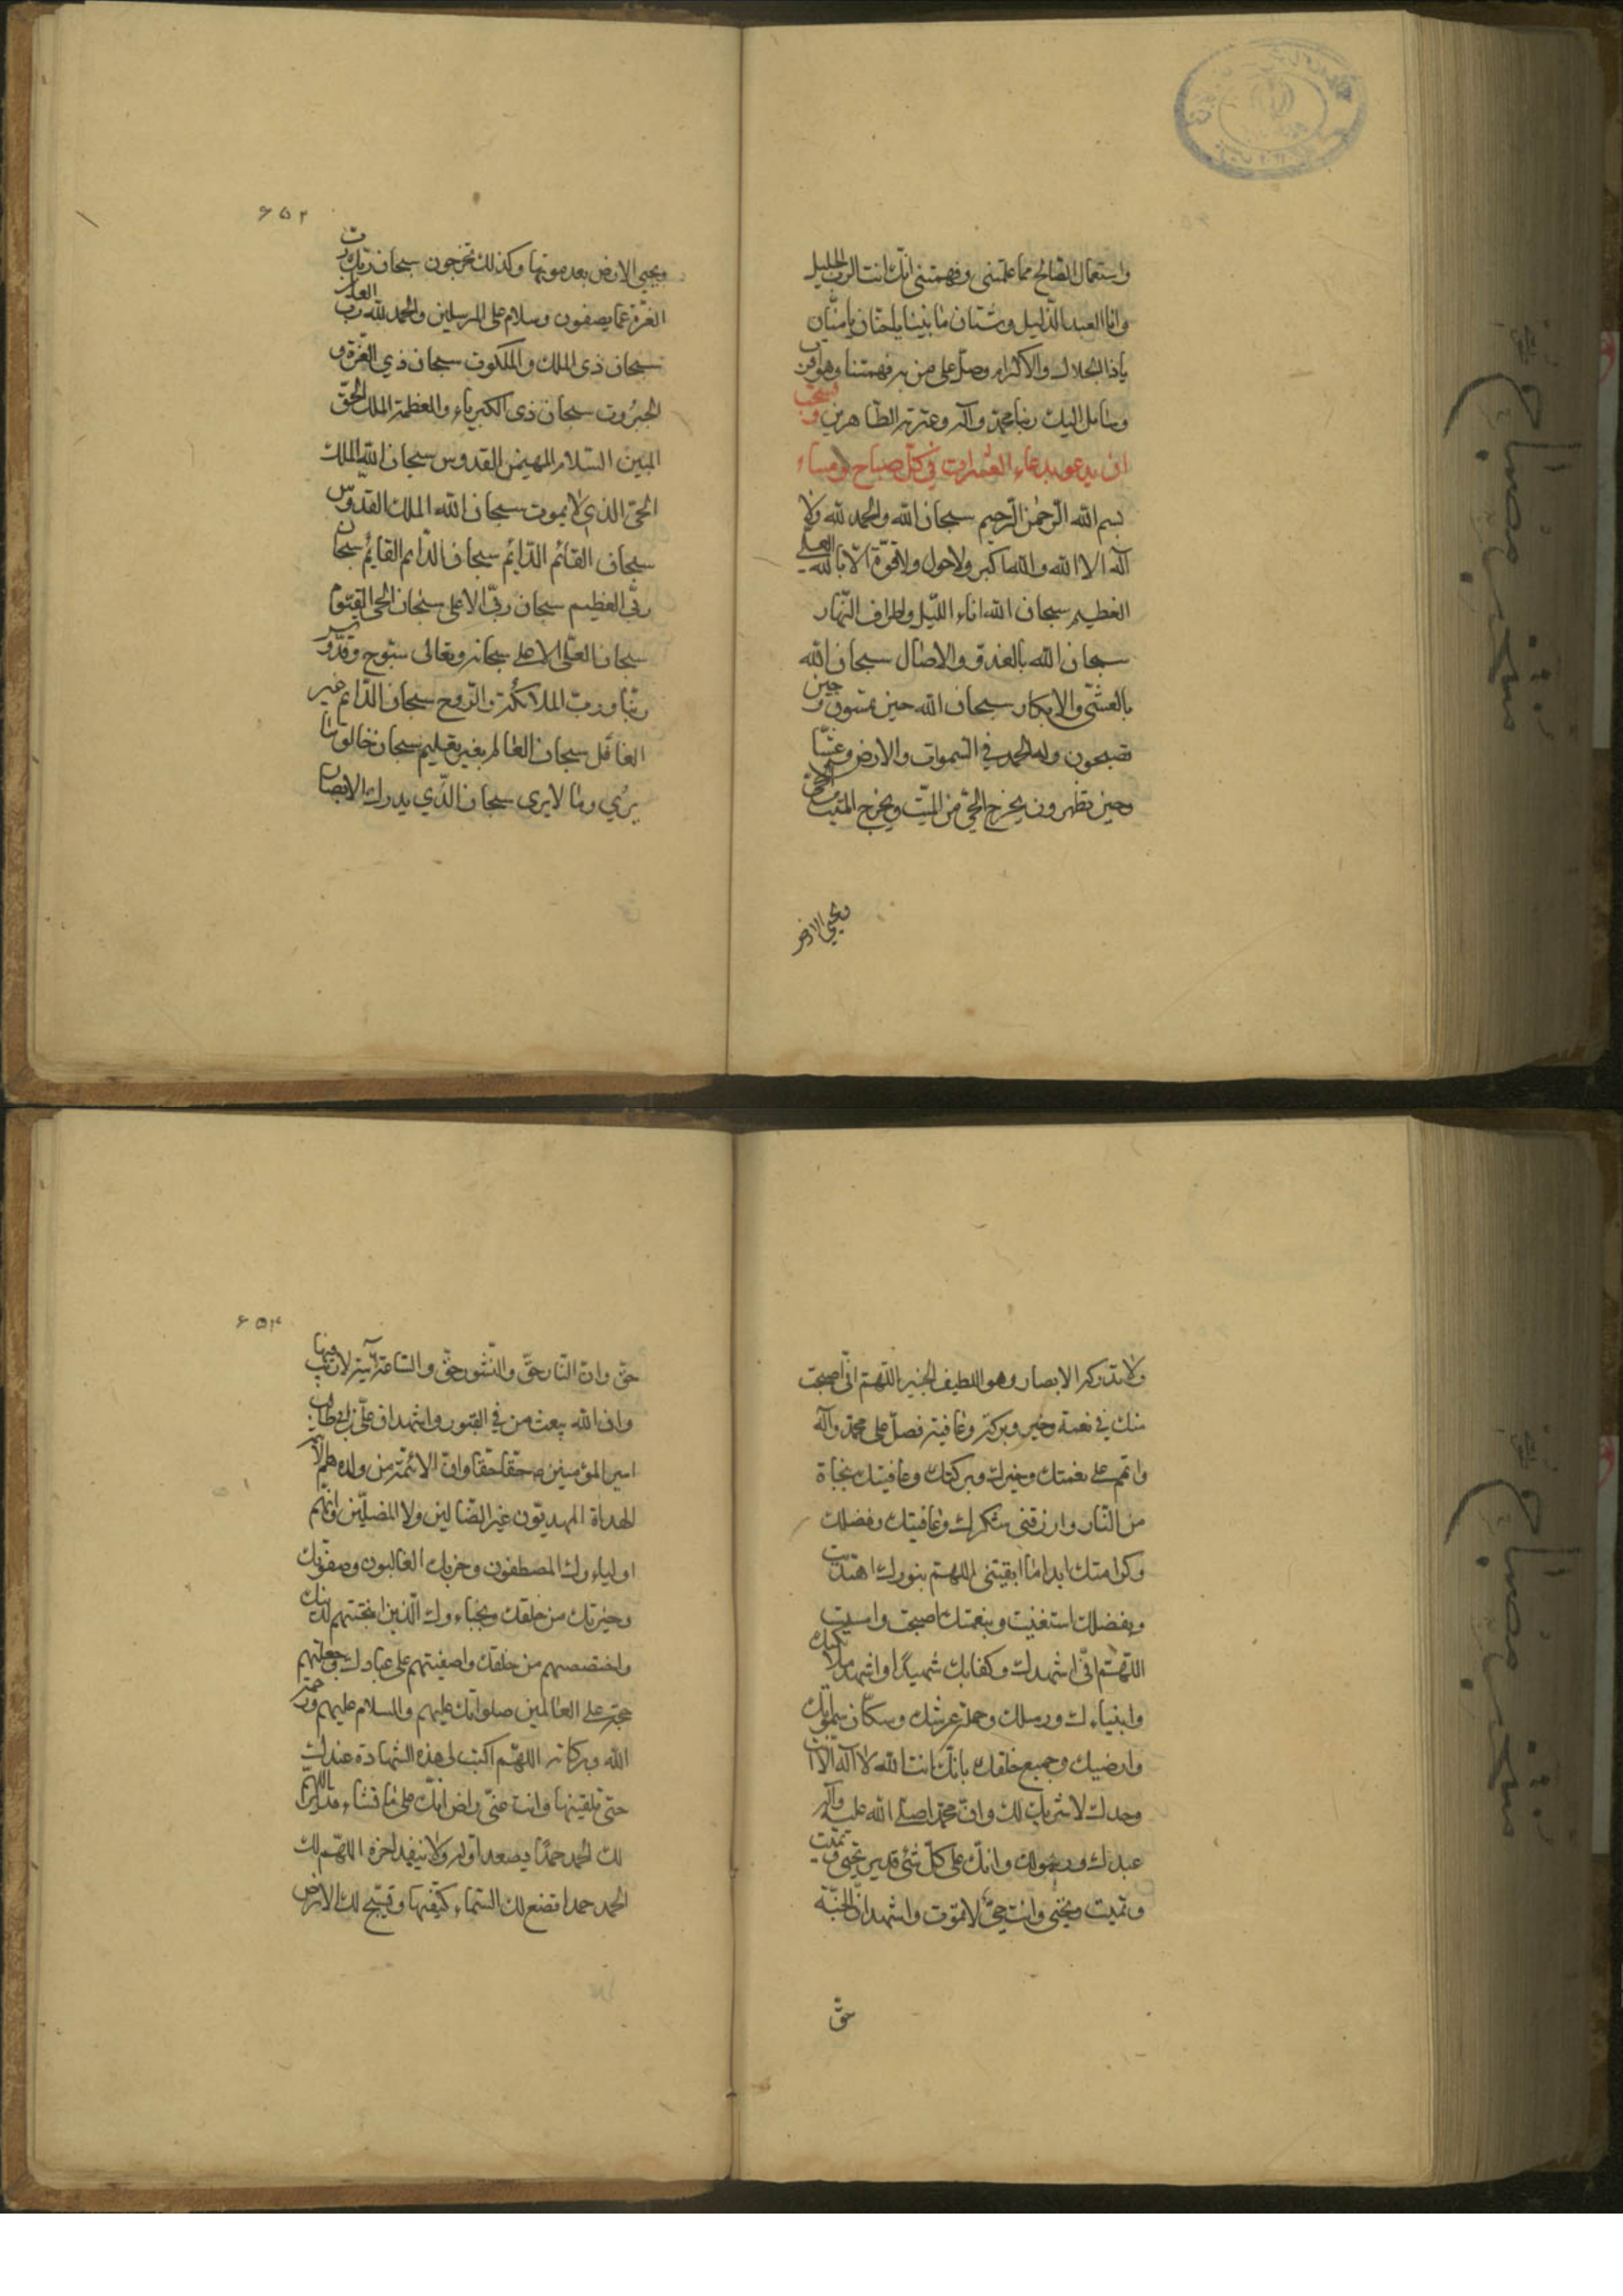 واستعمال الصالح مما علمتنى وفهمتنى انك انت الرب الجليل
وانا العبد الذليل وشتان ما بيننا يا حنان يا منان
ياذا الجلال والاكرام وصل على من به فهمتنا وهو اقرب
وسائل اليك ربنا محمد وآله وعترته الطاهرين ويستحب
ان يدعو بدعاء العشرات في كل صباح ومساء
بسم الله الرحمن الرحيم سبحان الله والحمد لله ولا
آله الا الله والله اكبر ولا حول ولا قوة الا بالله العلى
العظيم سبحان الله اناء الليل واطراف النهار
سبحان الله بالغدو والاصال سبحان الله
بالعشى والابكار سبحان الله حين تمسون وحين
تصبحون وله الحمد في السموات والارض وعشيا
وحين تظهرون يخرج الحى من الميت ويخرج الميت من الحى
ويحيي الارض
۶۵۲
ويحيي الارض بعد موتها وكذلك تخرجون سبحان ربك رب
العزة عما يصفون وسلام على المرسلين والحمد لله رب العالمين
سبحان ذى الملك والملكوت سبحان ذي العزة و
الجبروت سبحان ذى الكبرياء والعظمة الملك الحق
المبين السلام المهيمن القدوس سبحان الله الملك
الحى الذي لا يموت سبحان الله الملك القدوس
سبحان القائم الدايم سبحان الدايم القايم سبحان
ربى العظيم سبحان ربى الاعلى سبحان الحى القيوم
سبحان العلى الاعلى سبحانه وتعالى سبوح قدوس
ربنا ورب الملائكة والروح سبحان الدايم غير
الغافل سبحان العالم بغير تعليم سبحان خالق ما
يرى وما لا يرى سبحان الذي يدرك الابصار
ولا تدركه الابصار وهو اللطيف الخبير اللهم انى اصبحت
منك في نعمة وخير وبركة وعافية فصل على محمد وآله
واتمم على نعمتك وخيرك وبركتك وعافيتك بنجاة
من النار وارزقنى شكرك وعافيتك وفضلك
وكرامتك ابدا ما ابقيتنى اللهم بنورك اهتديت
وبفضلك استغنيت وبنعمتك اصبحت وامسيت
اللهم انى اشهدك وكفابك شهيدا واشهد ملائكتك
وانبياءك ورسلك وحملة عرشك وسكان سمواتك
وارضيك وجميع خلقك بانك انت الله لا آله الا انت
وحدك لا شريك لك وان محمدا صلى الله عليه وآله
عبدك ورسولك وانك على كل شئ قدير تحيى وتميت
وتميت وتحيى وانت حى لا تموت واشهد ان الجنة
حق
۶۵۳
حق وان النار حق والنشور حق والساعة آتية لا ريب فيها
وان الله يبعث من في القبور واشهد ان على بن ابى طالب
امير المؤمنين حقا حقا وان الائمة من ولده هم الائمة
الهداة المهديون غير الضالين ولا المضلين وانهم
اولياءك المصطفون وحزبك الغالبون وصفوتك
وخيرتك من خلقك ونجباءك الذين انتجبتهم لدينك
واختصصهم من خلقك واصفيتهم على عبادك وجعلتهم
حجة على العالمين صلواتك عليهم والسلام عليهم ورحمة
الله وبركاته اللهم اكتب لى هذه الشهادة عندك
حتى تلقينها وانت عنى راض انك على ما تشاء قدير اللهم
لك الحمد حمدا يصعد اوله ولا ينفد اخره اللهم لك
الحمد حمدا تضع لك السماء كنفيها وتسبح لك الارض